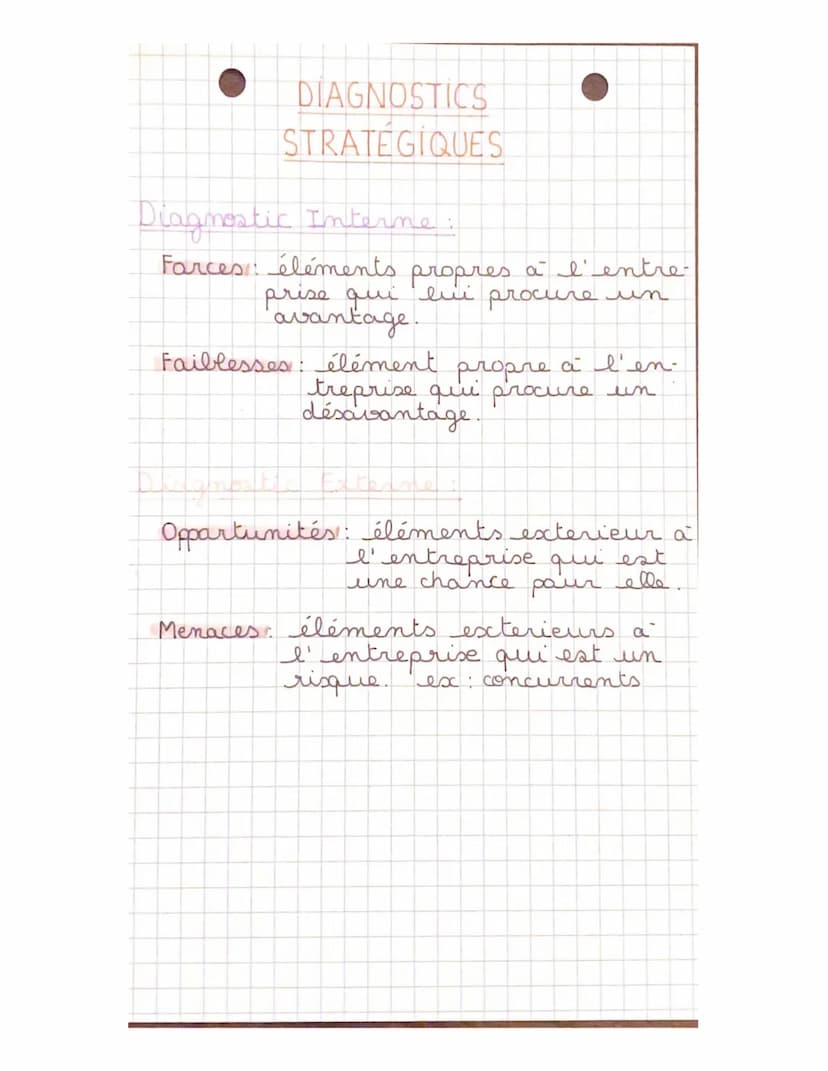 DIAGNOSTICS
STRATÉGIQUES
Diagnostic Interne :
Forces : éléments propres à l'entre-
prise qui lui procure un
avantage.
Faiblesses : élément propre à l'en-
treprise qui procure un
désavantage.
Diagnostic Externe :
Opportunités : éléments exterieur à
l'entreprise qui est
une chance pour elle.
Menaces : éléments exterieurs à
l'entreprise qui est un
risque. ex : concurrents